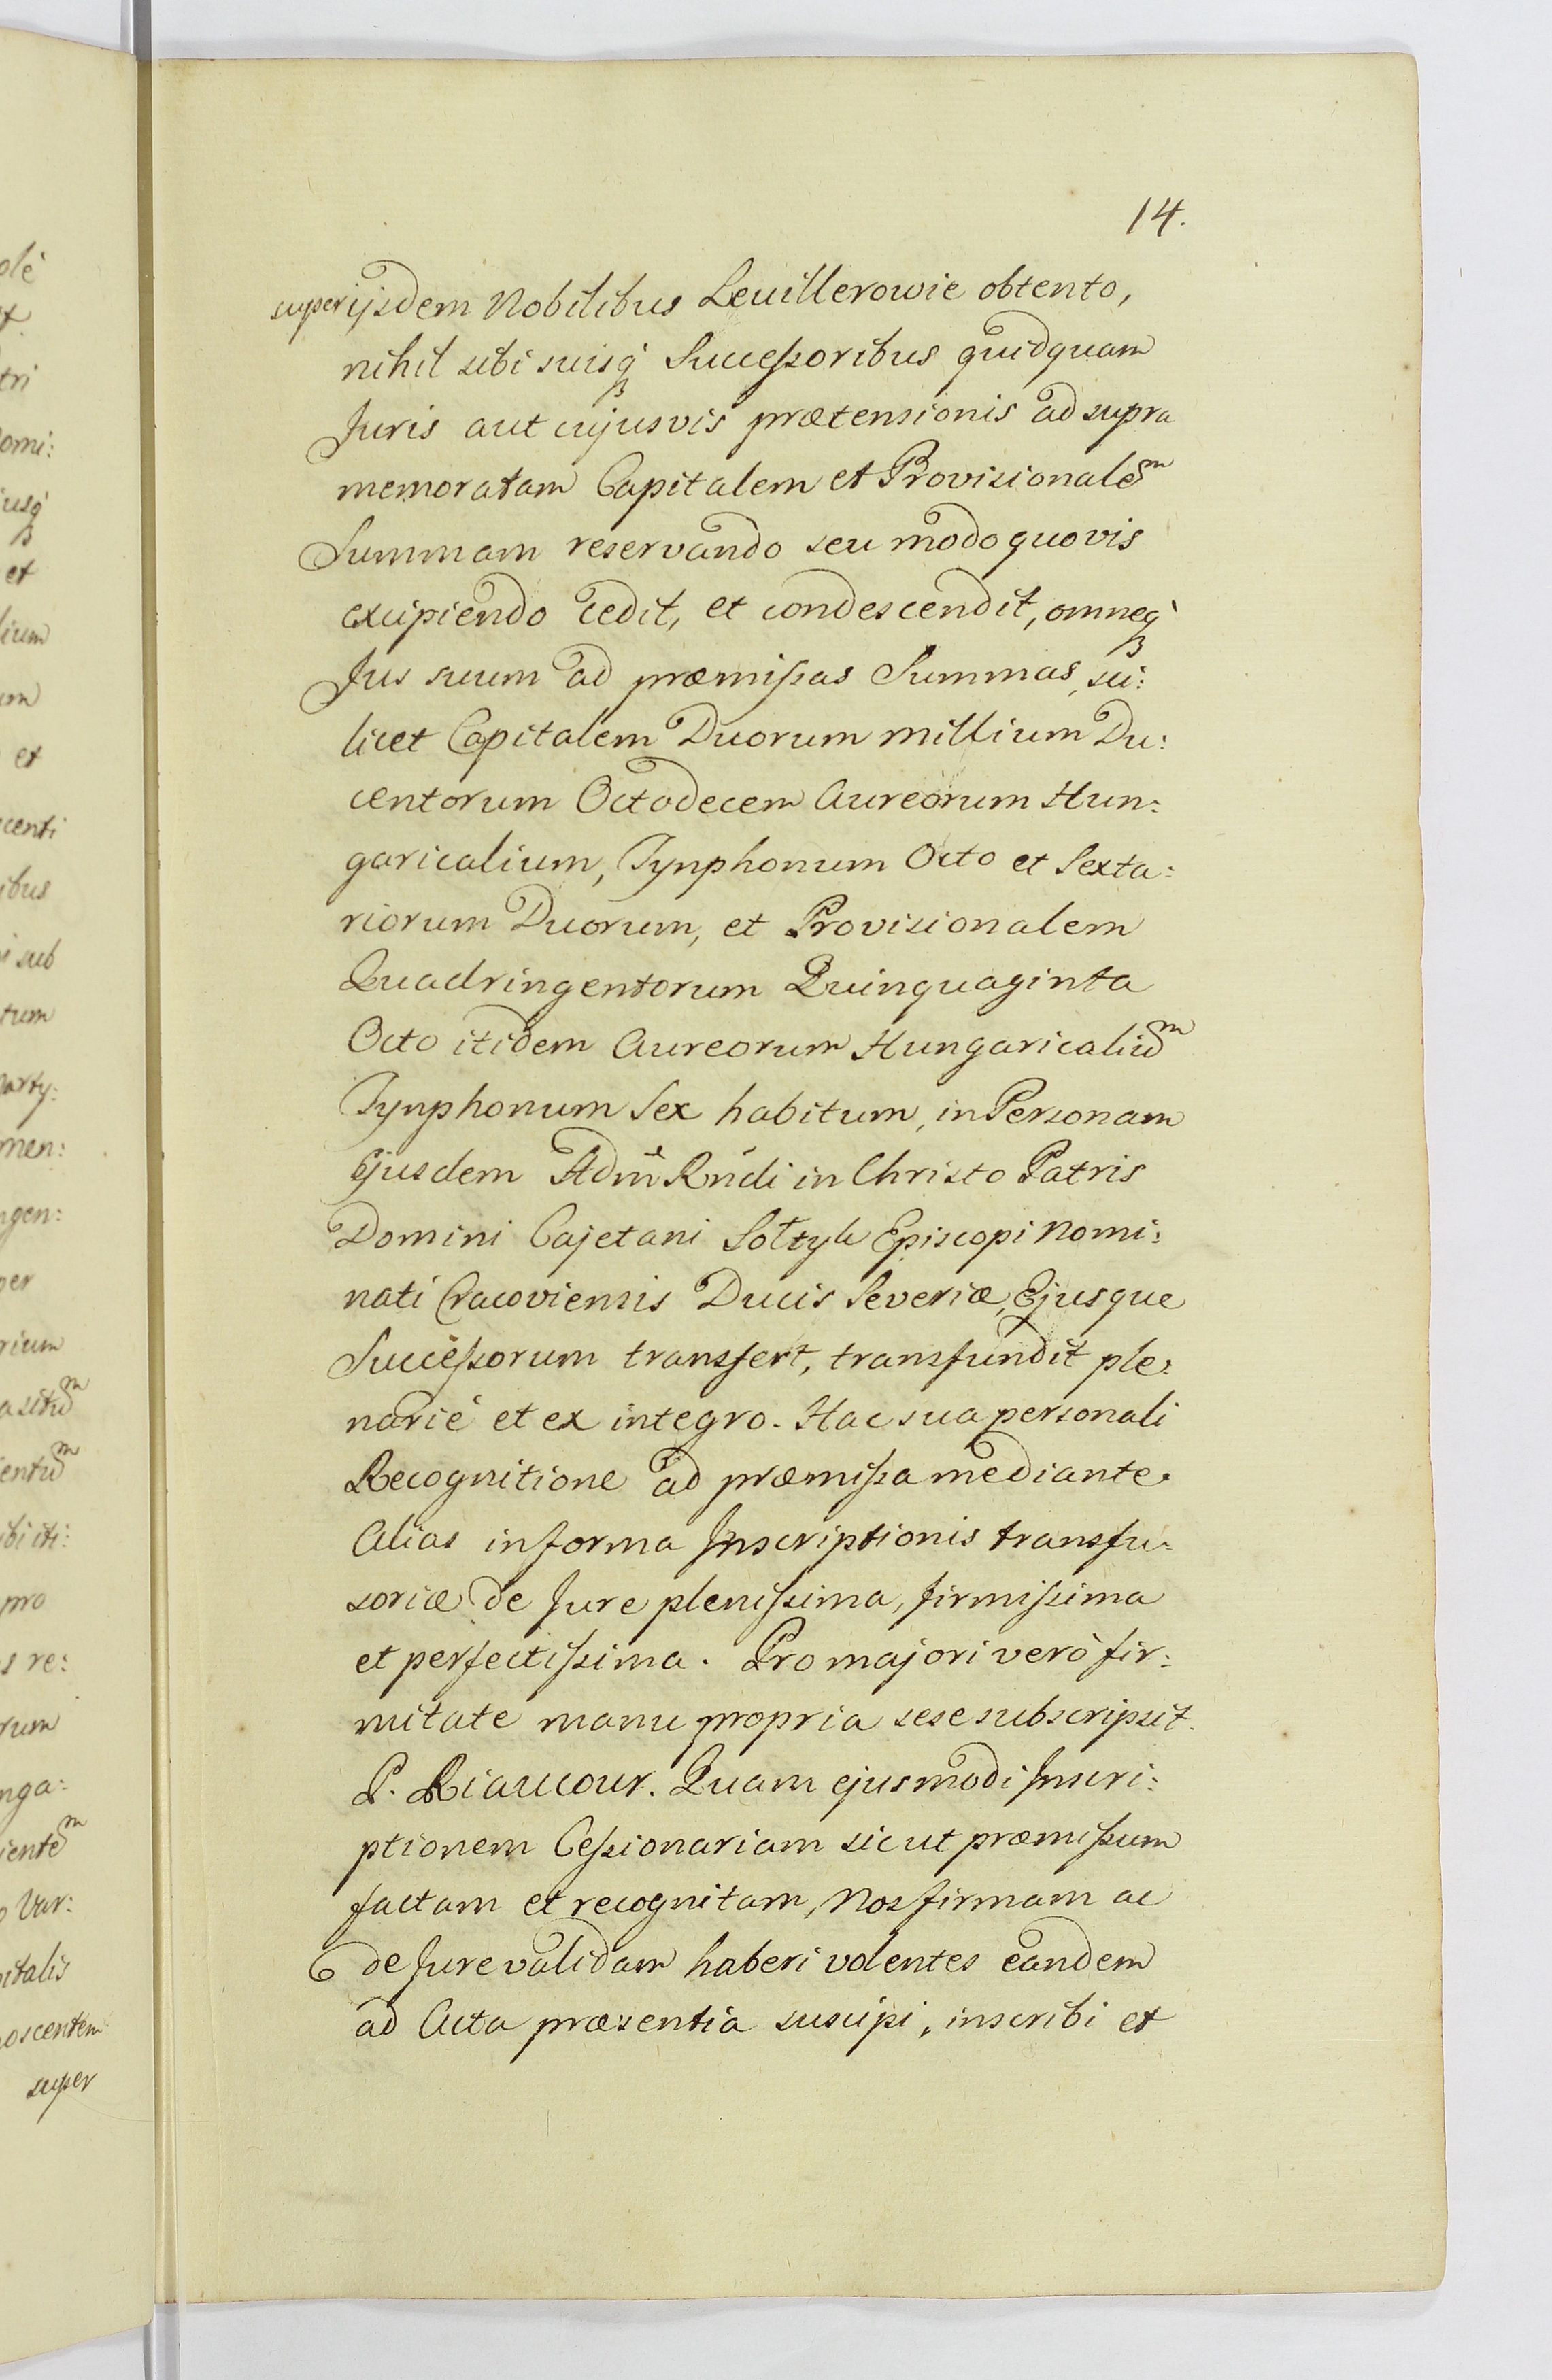 14.
super ijsdem Nobilibus Leuillerowie obtento,
nihil sibi suisq́ Succeſsoribus quidquam
Juris aut cujusvis prætensionis ad supra
memoratam Capitalem et Provisionalem
Summam reservando seu modo quovis
excipiendo cedit, et condescendit, omneq́
Jus suum ad præmiſsas Summas, sci:
licet Capitalem Duorum millium Du:
centorum Octodecem Aureorum Hun:
garicalium, Tynphonum Octo et Sexta:
riorum Duorum, et Provisionalem
Quadringentorum Quinquaginta
Octo itidem Aureorum Hungaricalium
Tynphonum Sex habitum, in Personam
Ejusdem Adm̃ Rńdi in Christo Patris
Domini Cajetani Sołtyk Episcopi Nomi:
nati Cracoviensis Ducis Severiæ, Ejusque
Succeſsorum transfert, transfundit ple:
nariè et ex integro. Hac sua personali
Recognitione ad præmiſsa mediante.
Alias in forma Inscriptionis transfu:
soriæ de Jure pleniſsima, firmiſsima
et perfectiſsima. Pro majori verò fir:
mitate manu propria sese subscripsit.
P. Riaucour. Quam ejusmodi Inscri:
ptionem Ceſsionariam sicut præmiſsum
factam et recognitam, Nos firmam ac
de Jure validam haberi volentes eandem
ad Acta præsentia suscipi, inscribi et
olè
tri
omi:
usq́
et
lium
et
centi
ibus
sub
tum
arty:
men:
ngen:
per
rium
asitum
entum
ibi iti:
pro
s re:
rum
nga:
ientem
Var:
pitalis
oscentem
super